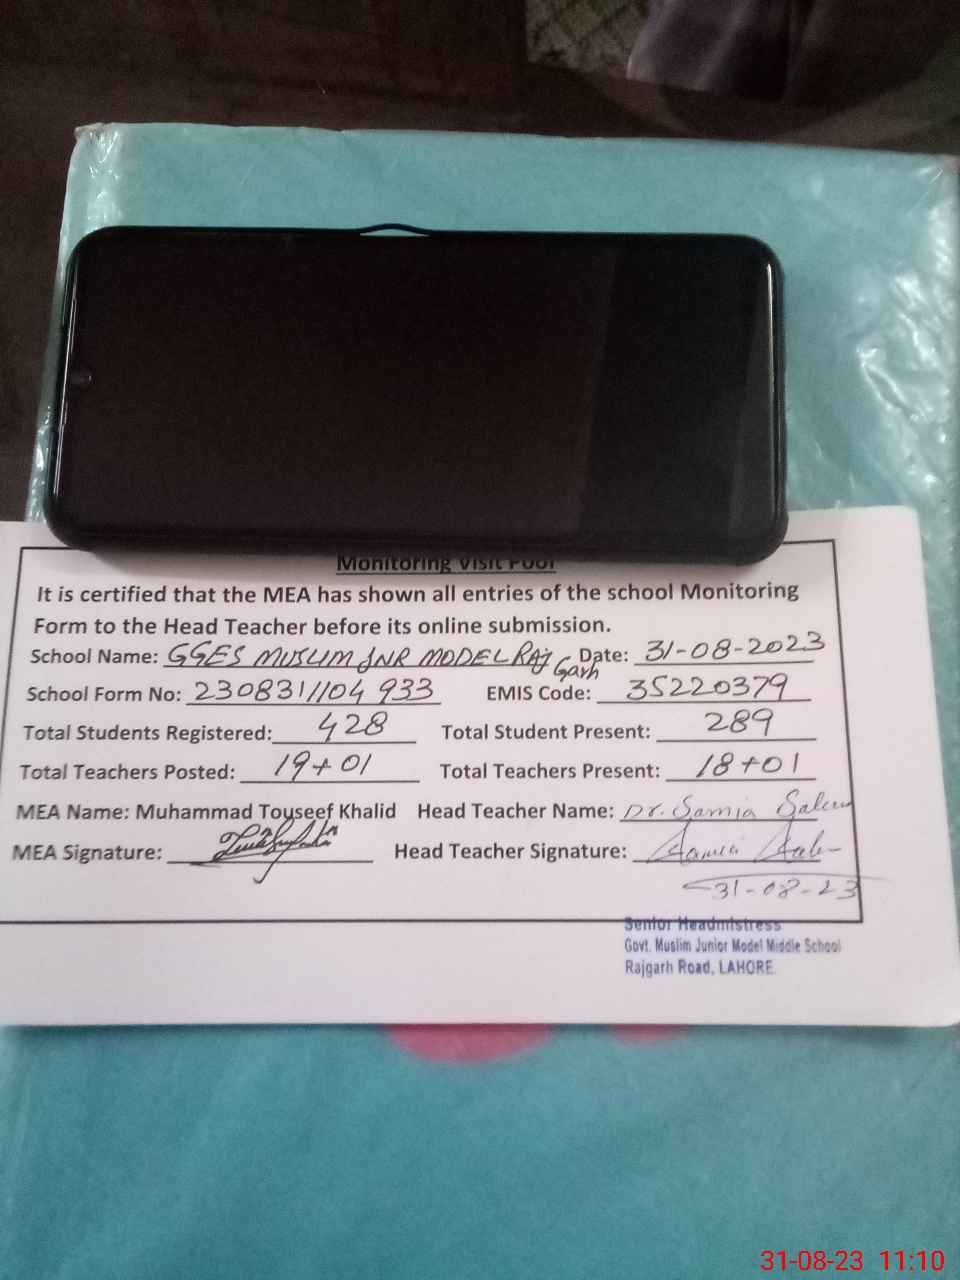 Monitoring Visit Poof
It is certified that the MEA has shown all entries of the school Monitoring
Form to the Head Teacher before its online submission.
School Name: GGES MUSLIM JNR MODEL RAJ Garh Date: 31-08-2023
School Form No: 230831/104 933 EMIS Code: 35220379
Total Students Registered: 428 Total Student Present: 289
Total Teachers Posted: 19+01 Total Teachers Present: 18+01
MEA Name: Muhammad Touseef Khalid Head Teacher Name: Dr. Samia Saleem
MEA Signature: Head Teacher Signature: Samia
31-08-23
Senior Headmistress
Govt. Muslim Junior Model Middle School
Rajgarh Road, LAHORE
31-08-23 11:10